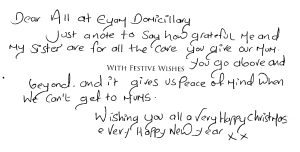 Dear All at Eyam Domiciliary
Just a note to say how grateful me and
my sister are for all the care you give our mum.
WITH FESTIVE WISHES
You go above and
beyond. and it gives us peace of mind when
we can't get to mums.
Wishing you all a very happy christmas
& very happy new year x x